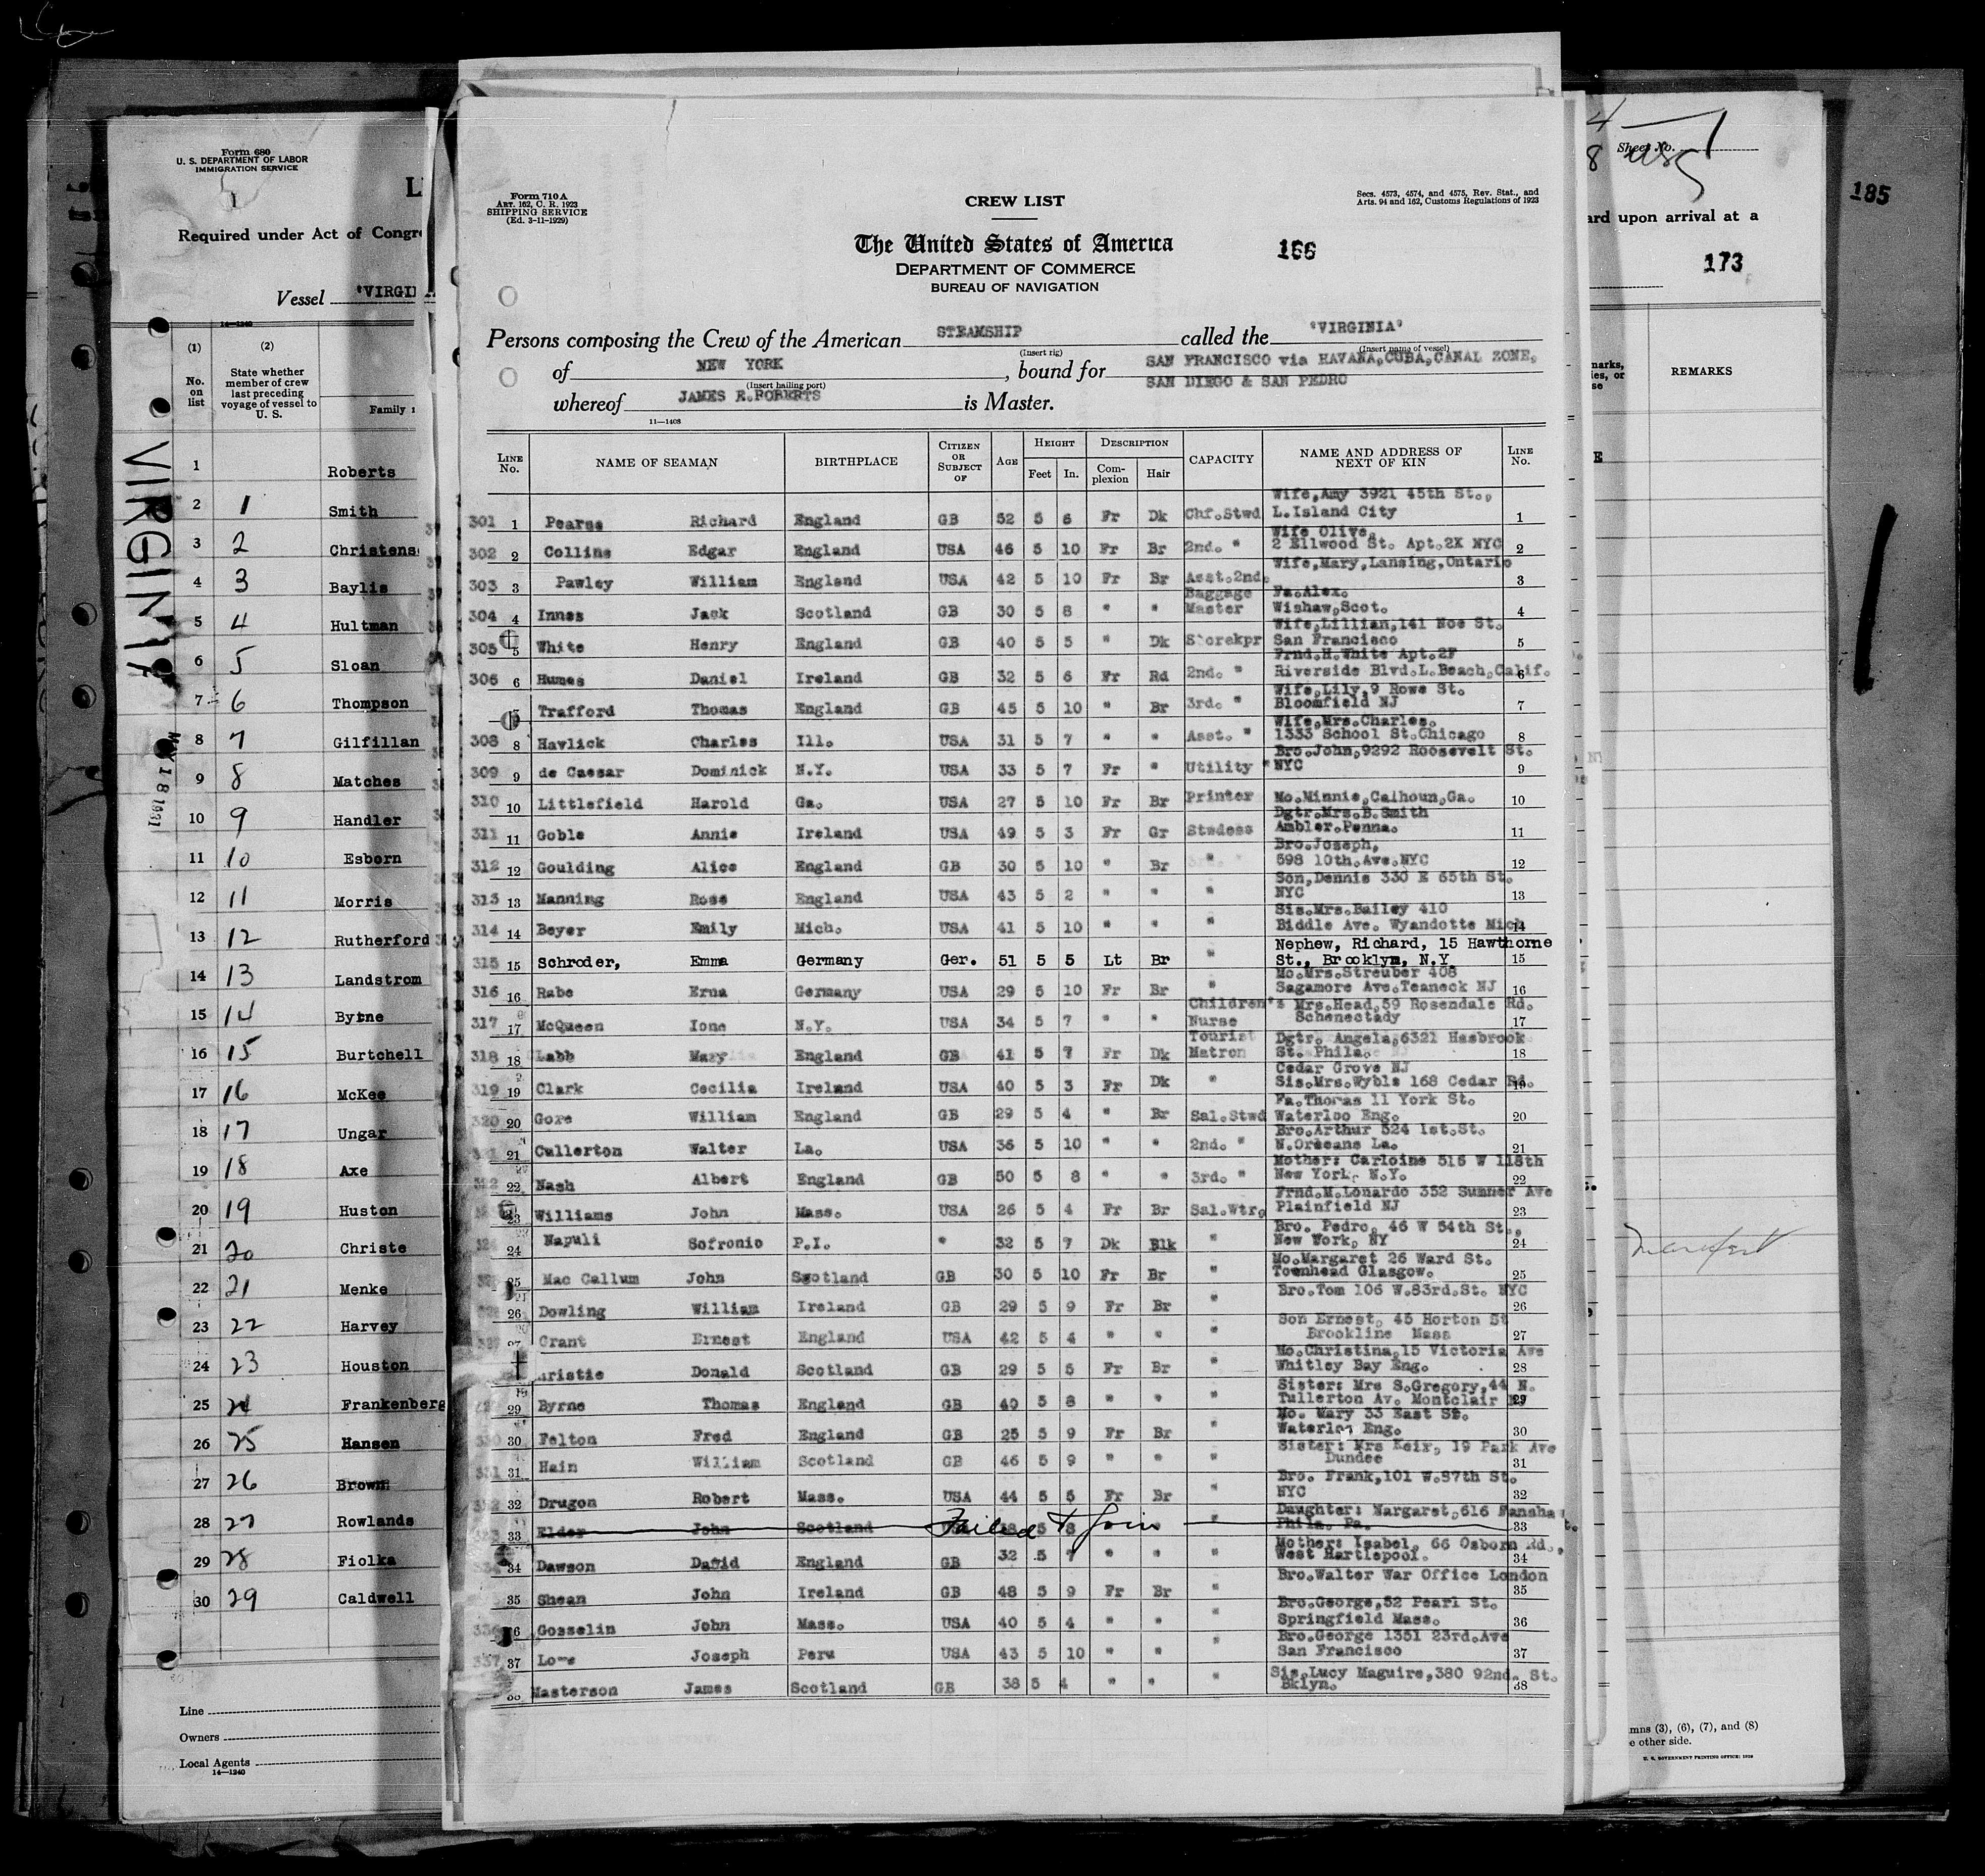 Form 680
U. S. DEPARTMENT OF LABOR
IMMIGRATION SERVICE
Required under Act of Congre
Vessel "VIRGI
14—1240
(1) (2)
No. on list
State whether member of crew last preceding voyage of vessel to U. S.
Family
VIRGINIA
1 Roberts
2 1 Smith
3 2 Christens
4 3 Baylis
5 4 Hultman
6 5 Sloan
7 6 Thompson
8 7 Gilfillan
9 8 Matches
10 9 Handler
11 10 Esborn
12 11 Morris
13 12 Rutherford
14 13 Landstrom
15 14 Byrne
16 15 Burtchell
17 16 McKee
18 17 Ungar
19 18 Axe
20 19 Huston
21 20 Christe
22 21 Menke
23 22 Harvey
24 23 Houston
25 24 Frankenberg
26 25 Hansen
27 26 Brown
28 27 Rowlands
29 28 Fiolka
30 29 Caldwell
Line
Owners
Local Agents
14—1240
Form 710 A
ART. 162, C. R. 1923
SHIPPING SERVICE
(Ed. 3-11-1929)
CREW LIST
Secs. 4573, 4574, and 4575, Rev. Stat., and
Arts. 94 and 162, Customs Regulations of 1923
The United States of America
166
DEPARTMENT OF COMMERCE
BUREAU OF NAVIGATION
Persons composing the Crew of the American STEAMSHIP called the "VIRGINIA"
(Insert rig) (Insert name of vessel)
of NEW YORK, bound for SAN FRANCISCO via HAVANA, CUBA, CANAL ZONE,
(Insert hailing port) SAN DIEGO & SAN PEDRO
whereof JAMES E. ROBERTS is Master.
11—1408
LINE No. NAME OF SEAMAN BIRTHPLACE CITIZEN OR SUBJECT OF AGE HEIGHT Feet In. DESCRIPTION Complexion Hair CAPACITY NAME AND ADDRESS OF NEXT OF KIN LINE No.
301 1 Pearse Richard England GB 52 5 6 Fr Dk Chf.Stwd Wife, Amy 3921 45th St., L.Island City 1
302 2 Collins Edgar England USA 46 5 10 Fr Br 2nd. " Wife Olive, 2 Ellwood St. Apt.2X NYC 2
303 3 Pawley William England USA 42 5 10 Fr Br Asst.2nd. Wife, Mary, Lansing, Ontario 3
304 4 Innes Jack Scotland GB 30 5 8 " " Baggage Master Fa.Alex. Wishaw, Scot. 4
305 5 White Henry England GB 40 5 5 " Dk Storekpr Wife, Lillian, 141 Noe St. San Francisco 5
306 6 Humes Daniel Ireland GB 32 5 6 Fr Rd 2nd. " Frnd.H.White Apt.2F Riverside Blvd.L.Beach, Calif. 6
7 Trafford Thomas England GB 45 5 10 " Br 3rd. " Wife, Lily, 9 Rowe St. Bloomfield NJ 7
308 8 Havlick Charles Ill. USA 31 5 7 " " Asst. " Wife, Mrs.Charles. 1333 School St.Chicago 8
309 9 de Caesar Dominick N.Y. USA 33 5 7 Fr " Utility " Bro.John, 9292 Roosevelt St. NYC 9
310 10 Littlefield Harold Ga. USA 27 5 10 Fr Br Printer Mo.Minnie, Calhoun, Ga. 10
311 11 Goble Annie Ireland USA 49 5 3 Fr Gr Stwdess Dgtr.Mrs.B.Smith Ambler.Penna. 11
312 12 Goulding Alice England GB 30 5 10 " Br " Bro.Joseph, 598 10th.Ave.NYC 12
313 13 Manning Rose England USA 43 5 2 " " " Son, Dennis 330 E 65th St. NYC 13
314 14 Beyer Emily Mich. USA 41 5 10 " " " Sis.Mrs.Bailey 410 Biddle Ave. Wyandotte Mich 14
315 15 Schroder, Emma Germany Ger. 51 5 5 Lt Br " Nephew, Richard, 15 Hawthorne St., Brooklyn, N.Y. 15
316 16 Rabe Erna Germany USA 29 5 10 Fr Br " Mo.Mrs.Streuber 408 Sagamore Ave.Teaneck NJ 16
317 17 McQueen Ione N.Y. USA 34 5 7 " " Children's Nurse Mrs.Head, 59 Rosendale Rd. Schenectady 17
318 18 Labb Mary England GB 41 5 7 Fr Dk Tourist Matron Dgtr. Angela, 6321 Hasbrook St. Phila. 18
319 19 Clark Cecilia Ireland USA 40 5 3 Fr Dk " Cedar Grove NJ Sis.Mrs.Wybls 168 Cedar Rd. 19
320 20 Gore William England GB 29 5 4 " Br Sal.Stwd Fa.Thomas 11 York St. Waterloo Eng. 20
21 Cullerton Walter La. USA 36 5 10 " " 2nd. " Bro.Arthur 524 1st.St. N.Orleans La. 21
22 Nash Albert England GB 50 5 8 " " 3rd. " Mother: Carloine 516 W 118th New York, N.Y. 22
23 Williams John Mass. USA 26 5 4 Fr Br Sal.Wtr. Frnd.M.Lonardo 352 Sumner Ave Plainfield NJ 23
24 Napuli Sofronio P.I. " 32 5 7 Dk Blk " Bro. Pedro, 46 W 54th St., New York, NY 24
25 Mac Callum John Scotland GB 30 5 10 Fr Br " Mo.Margaret 26 Ward St. Townhead Glasgow. 25
26 Dowling William Ireland GB 29 5 9 Fr Br " Bro.Tom 106 W.83rd.St. NYC 26
27 Grant Ernest England USA 42 5 4 " " " Son Ernest, 45 Horton St Brookline Mass 27
ristie Donald Scotland GB 29 5 5 Fr Br " Mo.Christina, 15 Victoria Ave Whitley Bay Eng. 28
29 Byrne Thomas England GB 40 5 8 " " " Sister: Mrs S.Gregory, 44 N. Tullerton Av. Montclair NJ 29
30 Felton Fred England GB 25 5 9 Fr Br " Mo. Mary 33 East St. Waterloo Eng. 30
331 31 Hain William Scotland GB 46 5 9 " " " Sister: Mrs Keir, 19 Park Ave Dundee 31
32 Drugon Robert Mass. USA 44 5 5 Fr Br " Bro. Frank, 101 W.87th St. NYC 32
33 Elder John Scotland Failed to Join 5 8 " Daughter: Nargaret, 616 Fansha t. Phila. Pa. 33
34 Dawson David England GB 32 5 7 " " " Mother: Isabel, 66 Osborn Rd., West Hartlepool. 34
35 Shean John Ireland GB 48 5 9 Fr Br " Bro.Walter War Office London 35
336 Gosselin John Mass. USA 40 5 4 " " " Bro.George, 52 Pearl St. Springfield Mass. 36
337 37 Joseph Peru USA 43 5 10 " " " Bro.George 1351 23rd.Ave San Francisco 37
Masterson James Scotland GB 38 5 4 " " " Sis.Lucy Maguire, 380 92nd. St. Bklyn. 38
Sheet No.
185
ard upon arrival at a
173
REMARKS
mns (3), (6), (7), and (8)
e other side.
U. S. GOVERNMENT PRINTING OFFICE